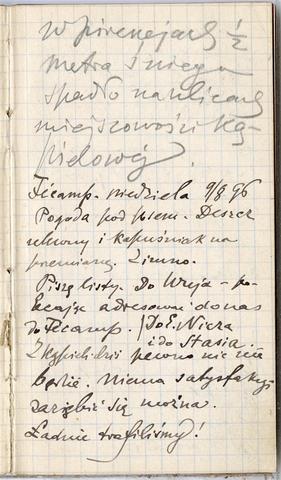 w pirenejach 1/2
metra śniegu
spadło na ulicach
miejscowości ką-
pielowej
Fécamp. niedziela 9/8 96
Pogoda pod psem. Deszcz
ulewny i kapuśniak na
przemianę. Zimno.
Piszę listy. Do Wyeja - po-
lecając adresować do nas
do Fécamp. / Do E. Nicza
i do Stasia.
Z kąpieli dziś pewno nic nie
będzie. Niema satysfakcyi
zaziębić się można.
Ładnie trafiliśmy!